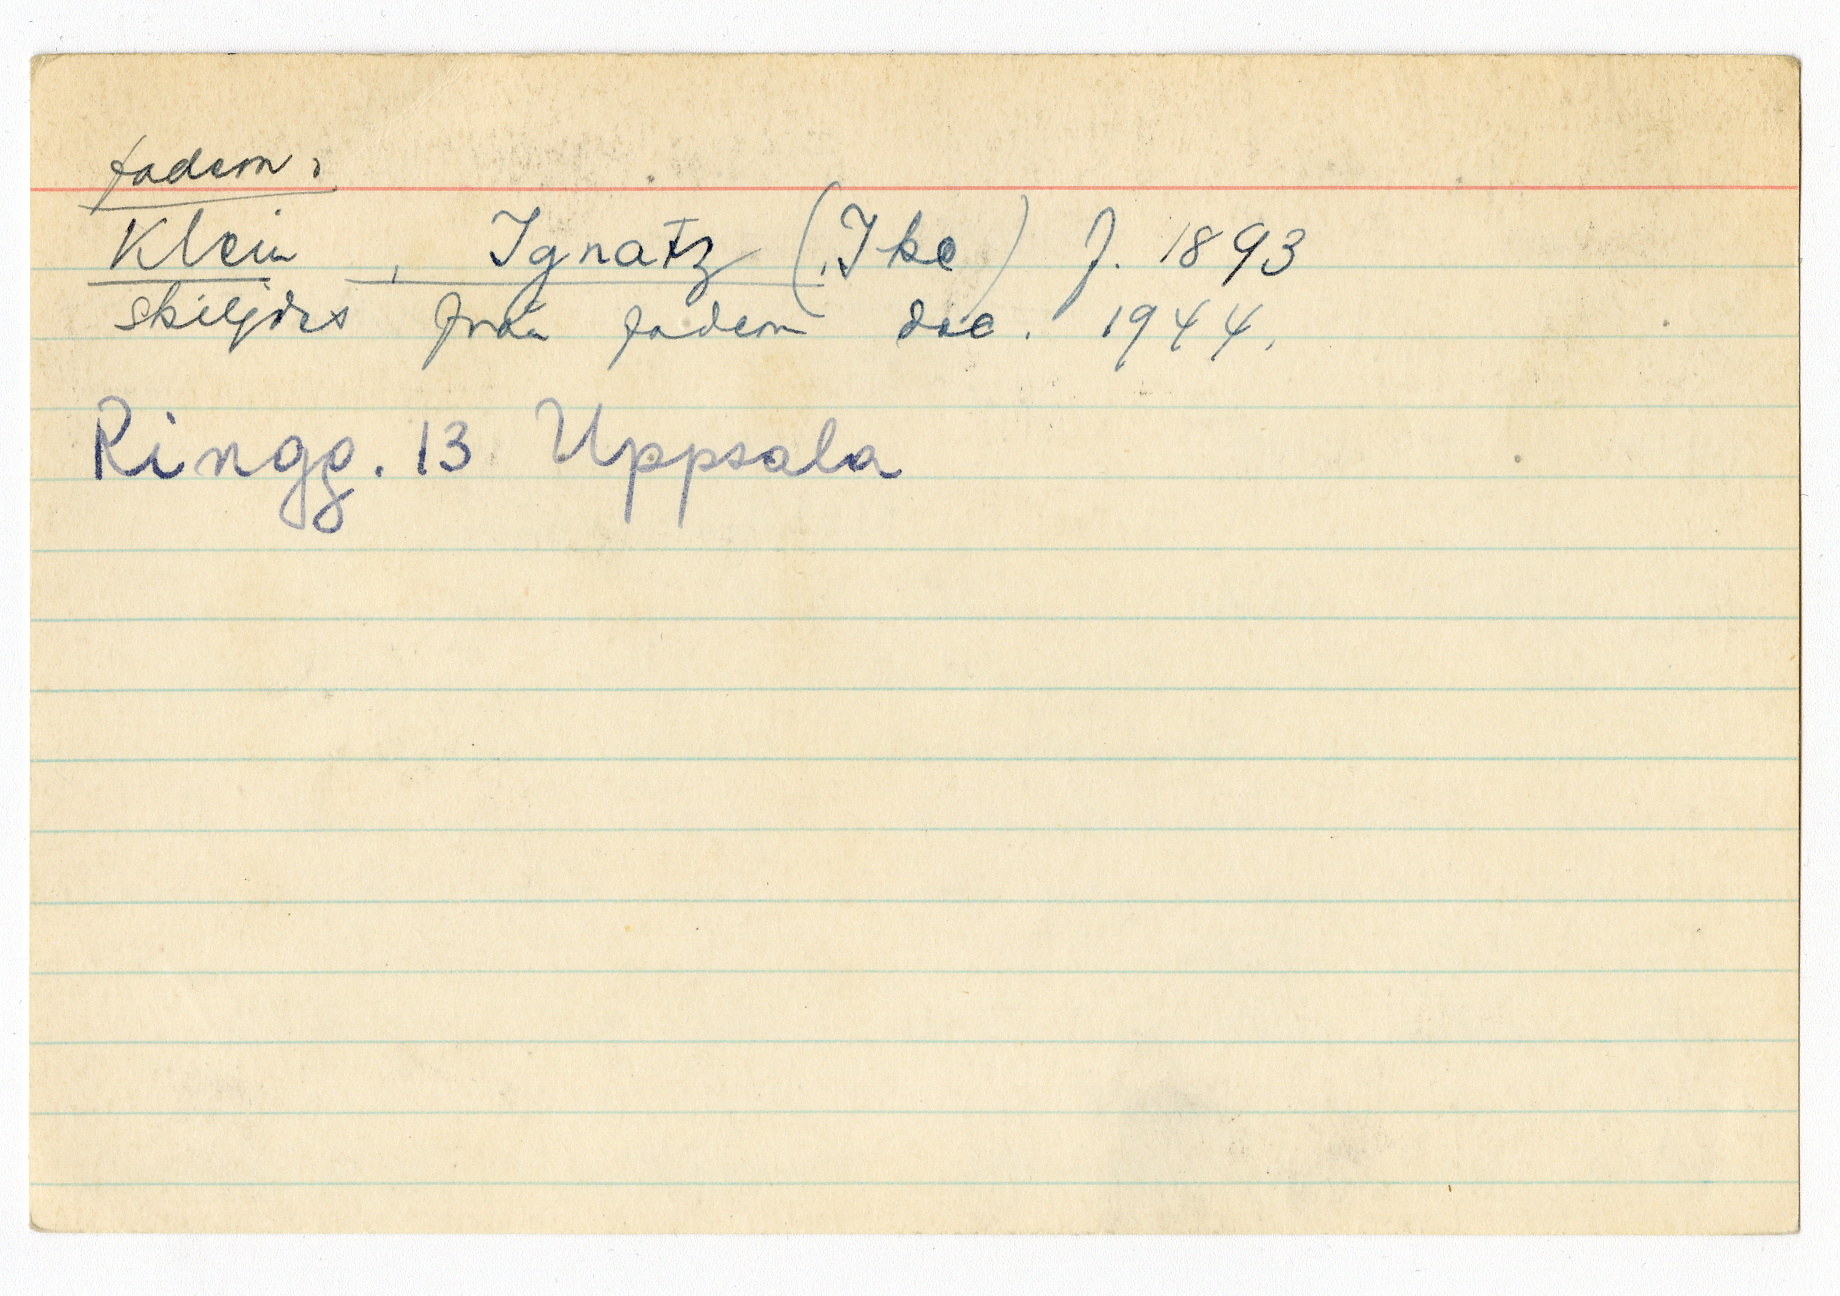 fadern:
Klein, Ignatz (Ike) f. 1893
skiljdes från fadern dec. 1944.
Ringg. 13 Uppsala